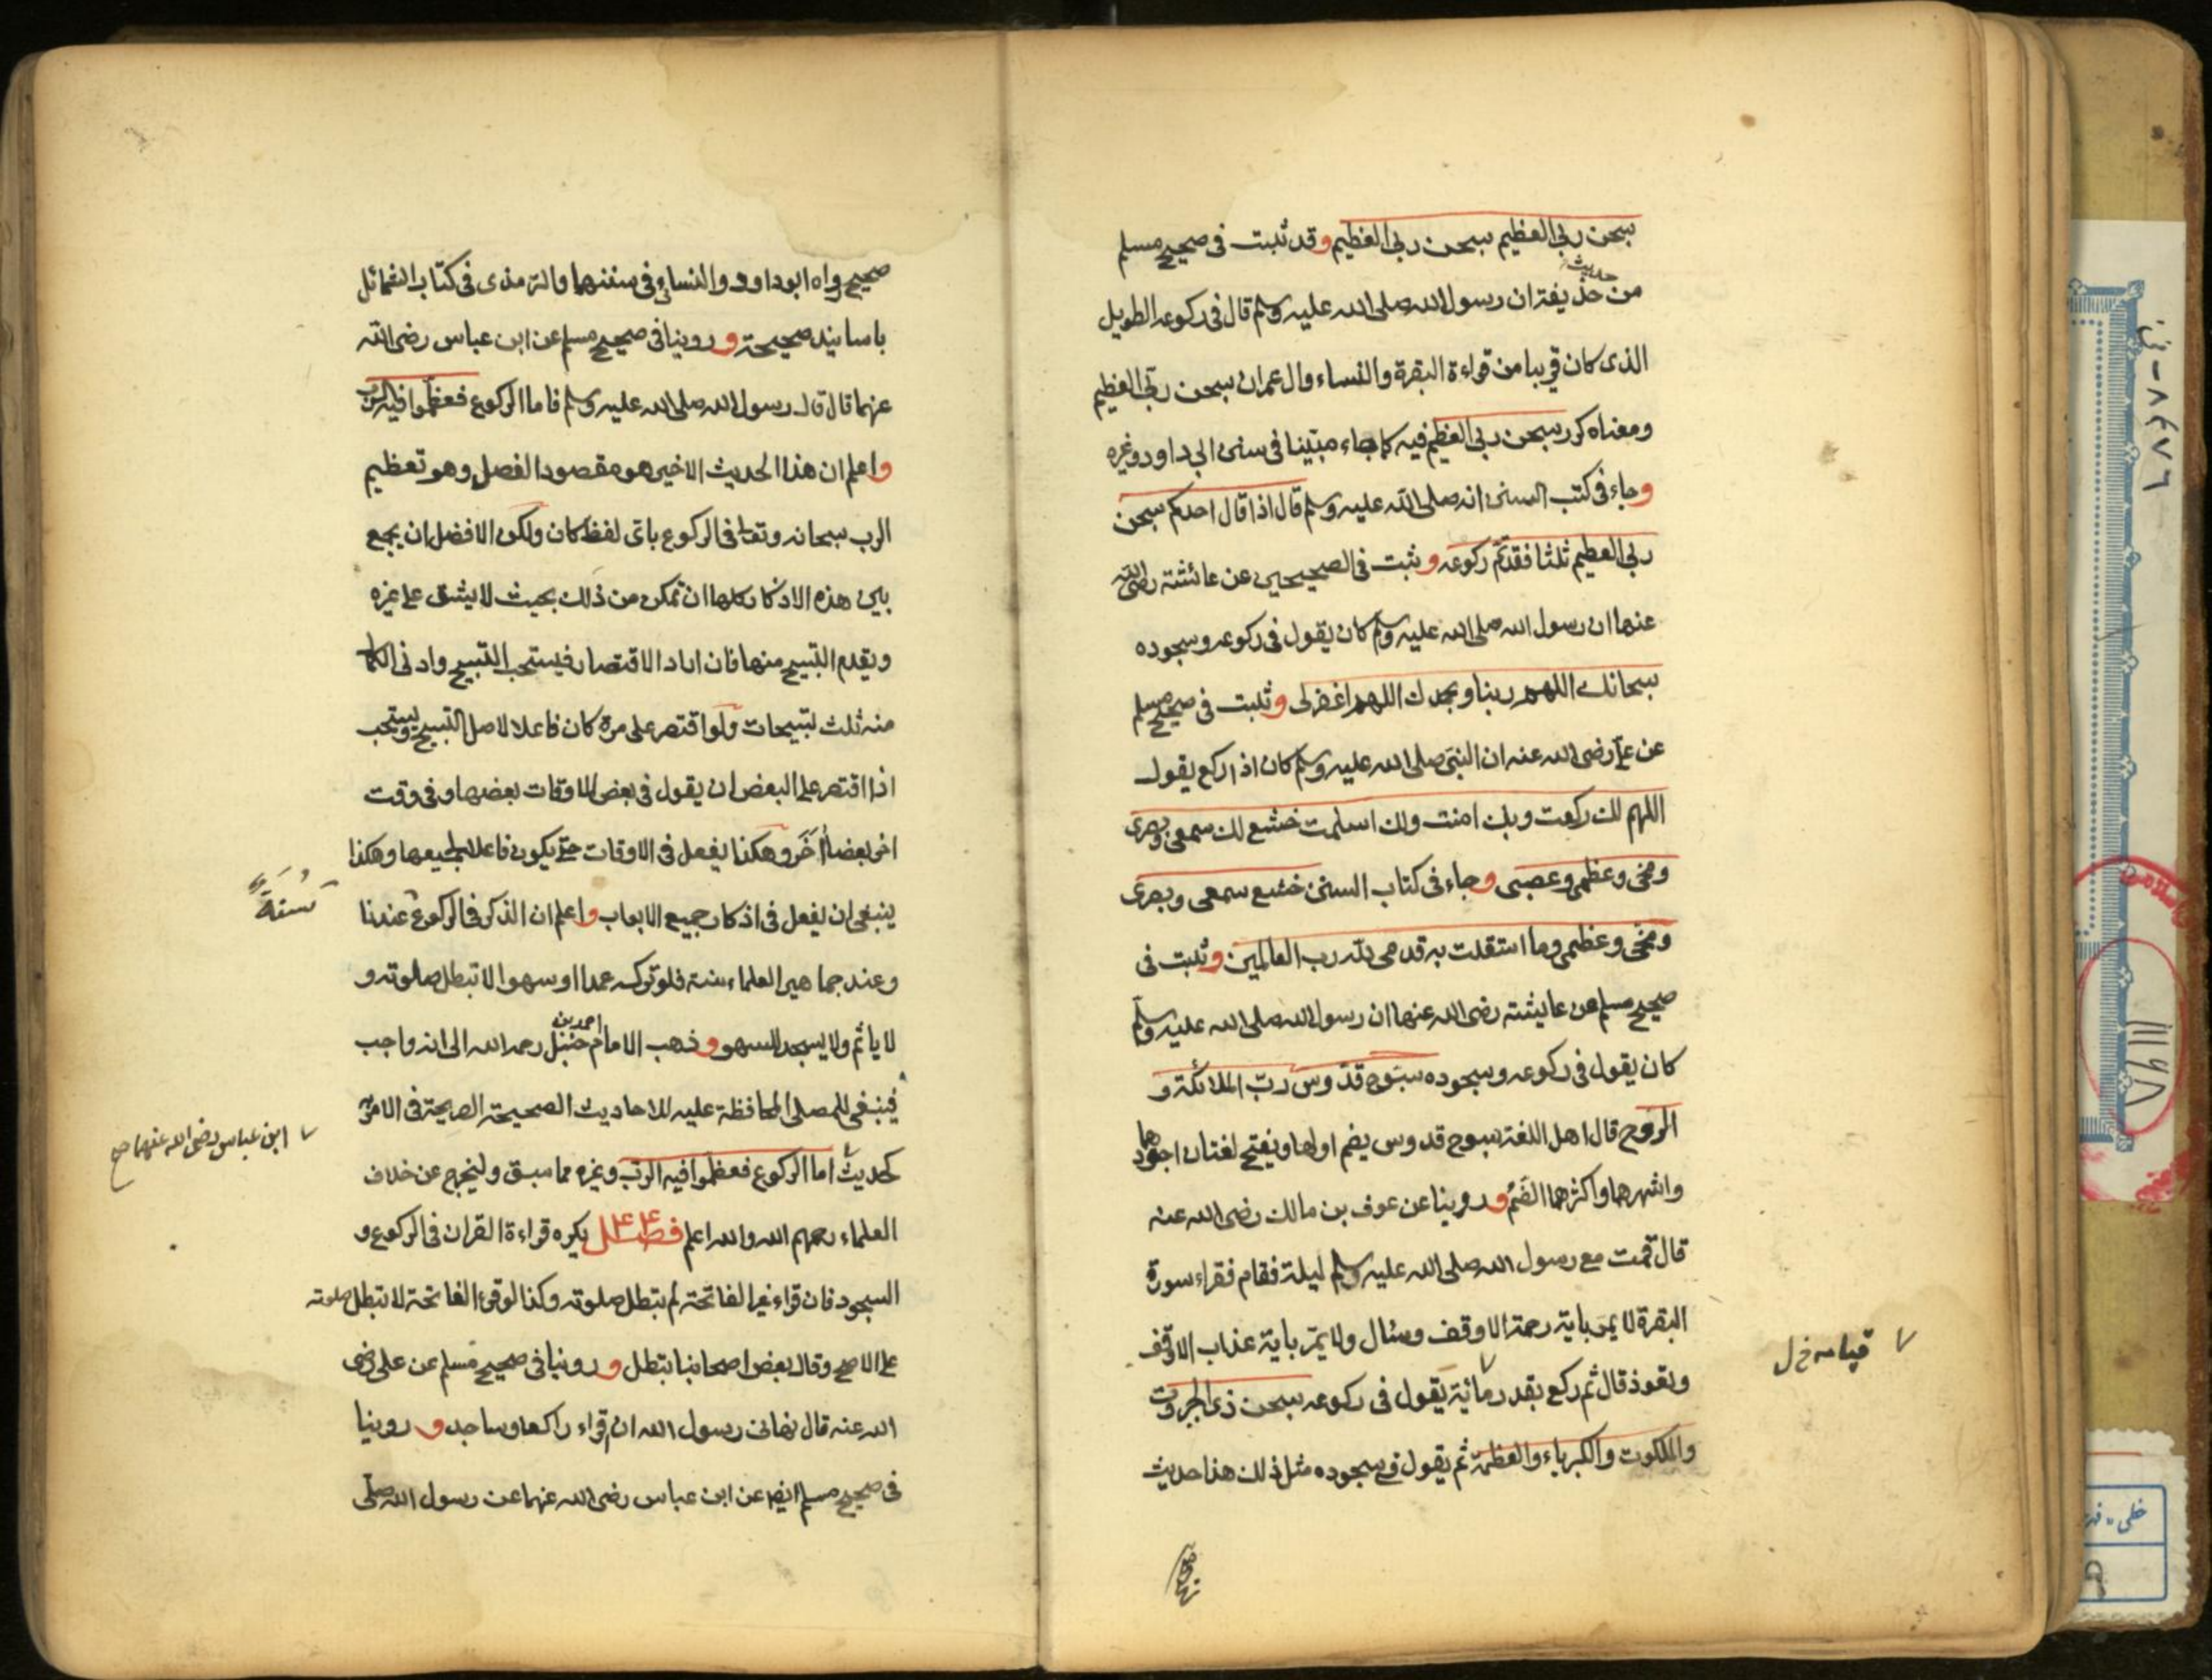 سبحن ربي العظيم سبحن ربي العظيم وقد ثبت فى صحيح مسلم
من حديث حذيفة ان رسول الله صلى الله عليه وسلم قال فى ركوعه الطويل
الذى كان قريبا من قراءة البقرة والنساء وال عمران سبحن ربي العظيم
ومعناه كرر سبحن ربي العظيم فيه كما جاء مبينا فى سنن ابى داود وغيره
وجاء فى كتب السنن انه صلى الله عليه وسلم قال اذا قال احدكم سبحن
ربي العظيم ثلثا فقد تم ركوعه وثبت فى الصحيحين عن عائشة رضى الله
عنها ان رسول الله صلى الله عليه وسلم كان يقول فى ركوعه وسجوده
سبحانك اللهم ربنا وبحمدك اللهم اغفرلى وثبت فى صحيح مسلم
عن على رضى الله عنه ان النبى صلى الله عليه وسلم كان اذا ركع يقول
اللهم لك ركعت وبك امنت ولك اسلمت خشع لك سمعى وبصرى
ومخى وعظمى وعصبى وجاء فى كتاب السنن خشع سمعى وبصرى
ومخى وعظمى وما استقلت به قدمى لله رب العالمين وثبت فى
صحيح مسلم عن عايشة رضى الله عنها ان رسول الله صلى الله عليه وسلم
كان يقول فى ركوعه وسجوده سبوح قدوس ربّ الملائكة و
الروح قال اهل اللغة سبوح قدوس بضم اولها وبفتح لغتان اجودها
واشهرها واكثرهما الضَمُ وروينا عن عوف بن مالك رضى الله عنه
قال قمت مع رسول الله صلى الله عليه وسلم ليلة فقام فقراء سورة
البقرة لا يمر باية رحمة الا وقف وسئال ولا يمرّ باية عذاب الا وقف
وتعوذ قال ثم ركع بقدر يقول فى ركوعه سبحن ذى الجبروت
والملكوت والكبرياء والعظمة ثم يقول فى سجوده مثل ذلك هذا حديث
صحيح
صحيح رواه ابوداود والنسائى فى سننهما والترمذى فى كتاب الشمائل
باسانيد صحيحة وروينا فى صحيح مسلم عن ابن عباس رضى الله
عنهما قال قال رسول الله صلى الله عليه وسلم فاما الركوع فعظموا فيه الرب
واعلم ان هذا الحديث الاخير هو مقصود الفصل وهو تعظيم
الرب سبحانه وتعالى فى الركوع باى لفظ كان ولكن الافضل ان يجمع
بين هذه الاذكار كلها ان تمكن من ذلك بحيث لا يشق على غيره
ويقدم التسبيح منها فان اراد الاقتصار فيستحب التسبيح وادنى الكمال
منه ثلث تسبيحات ولو اقتصر على مرة كان فاعلا لاصل التسبيح ويستحب
اذا اقتصر على البعض ان يقول فى بعض الاوقات بعضها وفى وقت
اخر بعضا اٰخَر وهكذا يفعل فى الاوقات حتى يكون فاعلا لجميعها وهكذا
ينبغى ان يفعل فى اذكار جميع الابواب واعلم ان الذكر فى الركوع عندنا
سُنة
وعند جماهير العلماء سنة فلو تركه عمدا او سهوا لا تبطل صلوته و
لا ياثم ولا يسجد للسهو وذهب الامام احمد بن حنبل رحمه الله الى انه واجب
فينبغى للمصلى المحافظة عليه للاحاديث الصحيحة الصريحة فى الامر به
ابن عباس رضى الله عنهما صح
كحديث اما الركوع فعظموا فيه الرب وغيره مما سبق وليخرج عن خلاف
العلماء رحمهم الله والله اعلم فصل يكره قراءة القران فى الركوع و
السجود فان قراء غير الفاتحة لم تبطل صلوته وكذا لو قرا الفاتحة لا تبطل صلوته
على الاصح وقال بعض اصحابنا تبطل وروينا فى صحيح مسلم عن على رضى
الله عنه قال نهانى رسول الله ان اقراء راكعا وساجد وروينا
فى صحيح مسلم ايضا عن ابن عباس رضى الله عنهما عن رسول الله صلى